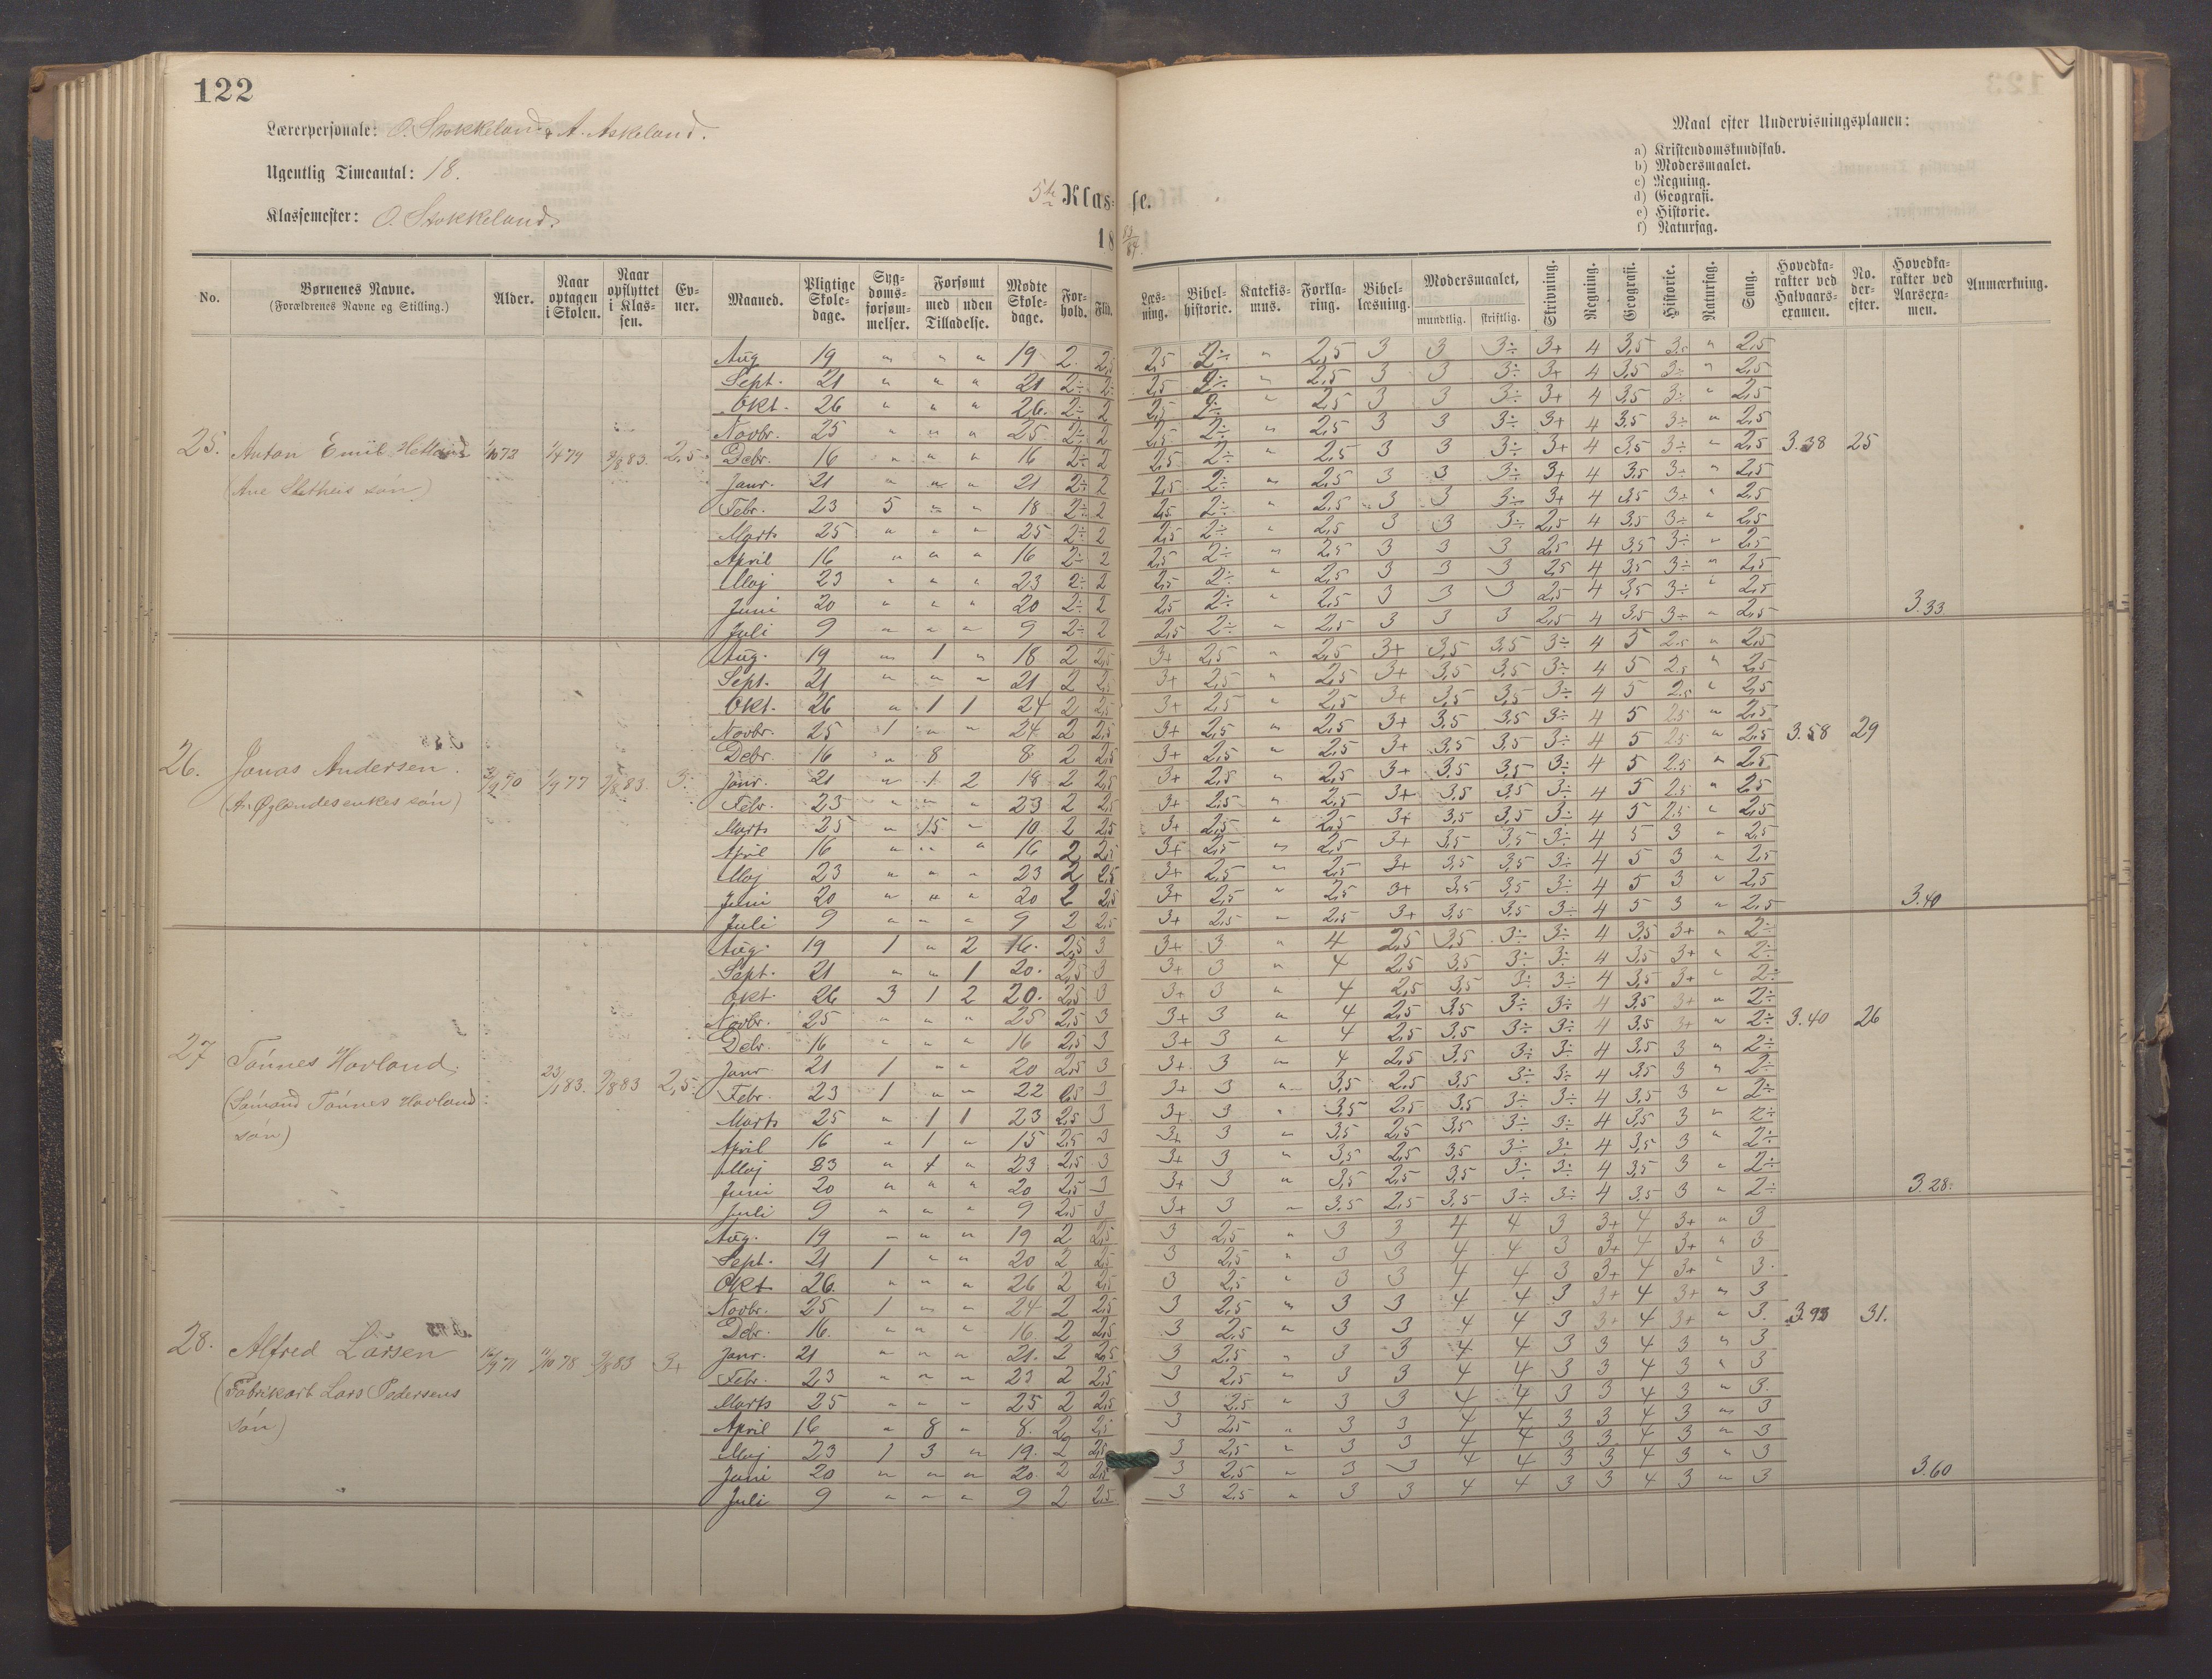 122
Lærerpersonale: O. Stokkeland & A. Askeland.
Ugentlig Timeantal: 18.
Klassemester: O. Stokkeland.
5te Klas- se.
18 83/84.
Maal efter Undervisningsplanen:
a) Kristendomskundskab.
b) Modersmaalet.
c) Regning.
d) Geografi.
e) Historie.
f) Naturfag.
No. Børnenes Navne. (Forældrenes Navne og Stilling.) Alder. Naar optagen i Skolen. Naar opflyttet i Klassen. Evner. Maaned. Pligtige Skoledage. Sygdomsforsømmelser. Forsømt med uden Tilladelse. Mødte Skoledage. Forhold. Flid. Læsning. Bibelhistorie. Katekismus. Forklaring. Bibellæsning. Modersmaalet, mundtlig. skriftlig. Skrivning. Regning. Geografi. Historie. Naturfag. Sang. Hovedkarakter ved Halvaarsexamen. No. derefter. Hovedkarakter ved Aarsexamen. Anmærkning.
Aug 19 " " " 19 2 2,5 2,5 2÷ " 2,5 3 3 3÷ 3+ 4 3,5 3,5 " 2,5
Sept. 21 " " " 21 2÷ 2÷ 2,5 2÷ " 2,5 3 3 3÷ 3+ 4 3,5 3÷ " 2,5
Okt. 26 " " " 26. 2÷ 2 2,5 2÷ " 2,5 3 3 3÷ 3+ 4 3,5 3÷ " 2,5
Novbr. 25 " " " 25 2÷ 2 2,5 2÷ " 2,5 3 3 3÷ 3+ 4 3,5 3÷ " 2,5
25. Anton Emil Helland 1/10 73 1/4 79 9/8 83. 2,5 Debr. 16 " " " 16 2÷ 2 2,5 2÷ " 2,5 3 3 3÷ 3+ 4 3,5 3÷ " 2,5 3.38 25
Janr. 21 " " " 21 2÷ 2 2,5 2÷ " 2,5 3 3 3÷ 3+ 4 3,5 3÷ " 2,5
Febr. 23 5 " " 18 2÷ 2 2,5 2÷ " 2,5 3 3 3÷ 3+ 4 3,5 3÷ " 2,5
Marts 25 " " " 25 2÷ 2 2,5 2÷ " 2,5 3 3 3÷ 2,5 4 3,5 3÷ " 2,5
April 16 " " " 16 2÷ 2 2,5 2÷ " 2,5 3 3 3 2,5 4 3,5 3÷ " 2,5
Maj 23 " " " 23 2÷ 2 2,5 2÷ " 2,5 3 3 3 2,5 4 3,5 3÷ " 2,5
Juni 20 " " " 20 2÷ 2 2,5 2÷ " 2,5 3 3 3 2,5 4 3,5 3÷ " 2,5 3.33
Juli 9 " " " 9 2÷ 2 2,5 2÷ " 2,5 3 3 3 2,5 4 3,5 3÷ " 2,5
Aug. 19 " 1 " 18 2 2,5 3+ 2,5 " 2,5 3+ 3,5 3,5 3÷ 4 5 2.5 " 2,5
Sept. 21 " " " 21 2 2,5 3+ 2,5 " 2,5 3+ 3,5 3,5 3÷ 4 5 2.5 " 2,5
Okt. 26 " 1 1 24 2 2,5 3+ 2,5 " 2,5 3+ 3,5 3,5 3÷ 4 5 2.5 " 2,5
Novbr. 25 1 " " 24 2 2,5 3+ 2,5 " 2,5 3+ 3,5 3,5 3÷ 4 5 2.5 " 2,5
Debr. 16 " 8 8 2 2,5 3+ 2,5 " 2,5 3+ 3,5 3,5 3÷ 4 5 2.5 " 2,5 3.58 29
26. Jonas Andersen. 1/9 77 9/8 83. 3. Janr. 21 " 1 2 18 2 2,5 3+ 2,5 " 2,5 3+ 3,5 3,5 3÷ 4 5 2.5 " 2,5
(A. Øglændes enkes søn) Febr. 23 " " " 23 2 2,5 3+ 2,5 " 2,5 3+ 3,5 3,5 3÷ 4 5 2.5 " 2,5
Marts 25 " 15 " 10 2 2,5 3+ 2,5 " 2,5 3+ 3,5 3,5 3÷ 4 5 2.5 " 2,5
April 16 " " " 16 2 2,5 3+ 2,5 " 2,5 3+ 3,5 3,5 3÷ 4 5 3 " 2,5
Maj 23 " " " 23 2 2,5 3+ 2,5 " 2,5 3+ 3,5 3,5 3÷ 4 5 3 " 2,5
Juni 20 " " " 20 2 2,5 3+ 2,5 " 2,5 3+ 3,5 3,5 3÷ 4 5 3 " 2,5 3.40
Juli 9 " " " 9 2 2,5 3+ 2,5 " 2,5 3+ 3,5 3,5 3÷ 4 5 3 " 2,5
Aug. 19 1 " 2 16. 2,5 3 3+ 3 " 4 2,5 3,5 3÷ 3÷ 4 3,5 3+ " 2÷
Sept. 21 " " 1 20. 2,5 3 3+ 3 " 4 2,5 3,5 3÷ 3÷ 4 3,5 3+ " 2÷
Okt. 26 3 1 2 20. 2,5 3 3+ 3 " 4 2,5 3,5 3÷ 3÷ 4 3,5 3+ " 2÷
Novbr. 25 " " " 25 2,5 3 3+ 3 " 4 2,5 3,5 3÷ 3÷ 4 3,5 3+ " 2÷
27 Tönnes Hovland. Debr. 16 " " " 16 2,5 3 3+ 3 " 4 2,5 3,5 3÷ 3÷ 4 3,5 3+ " 2÷ 3.40 26
23/1 83. 9/8 83 2,5 Janr. 21 1 " " 20 2,5 3 3+ 3 " 4 2,5 3,5 3÷ 3÷ 4 3,5 3 " 2÷
(Sömand Tönnes Hovland Febr. 23 1 " " 22 2,5 3 3+ 3 " 3,5 2,5 3,5 3÷ 3÷ 4 3,5 3 " 2÷
søn) Marts 25 " 1 1 23 2,5 3 3+ 3 " 3,5 2,5 3,5 3÷ 3÷ 4 3,5 3 " 2÷
April 16 " 1 " 15 2,5 3 3+ 3 " 3,5 2,5 3,5 3÷ 3÷ 4 3,5 3 " 2÷
Maj 23 " " 23 2,5 3 3+ 3 " 3,5 2,5 3,5 3÷ 3÷ 4 3,5 3 " 2÷
Juni 20 " " " 20 2,5 3 3+ 3 " 3,5 2,5 3,5 3÷ 3÷ 4 3,5 3 " 2÷ 3.28.
Juli 9 " " " 9 2,5 3 3+ 3 " 3,5 2,5 3,5 3÷ 3÷ 4 3,5 3 " 2÷
Aug. 19 " " " 19 2 2,5 3 2,5 " 3 3 4 4 3 3+ 4 3+ " 3
Sept. 21 1 " " 20 2 2,5 3 2,5 " 3 3 4 4 3 3+ 4 3+ " 3
Okt 26. " " " 26 2 2,5 3 2,5 " 3 3 4 4 3 3+ 4 3+ " 3.
Novbr. 25 1 " " 24 2 2,5 3 2,5 " 3 3 4 4 3 3+ 4 3+ " 3
Debr. 16. " " " 16. 2 2,5 3 2,5 " 3 3 4 4 3 3+ 4 3+ " 3. 3.93 31.
28. Alfred Larsen 16/9 71 1/10 78 9/8 83 3+ Janr. 21 " " " 21. 2 2,5 3 2,5 " 3 3 4 4 3 3 4 3 " 3
(Fabrikarb Lars Pedersens Febr. 23 " " " 23 2 2,5 3 2,5 " 3 3 4 4 3 3 4 3 " 3
søn) Marts 25 " " " 25 2 2,5 3 2,5 " 3 3 4 4 3 3 4 3 " 3.
April 16 " 8 " 8. 2 2,5 3 2,5 " 3 3 4 4 3 3 4 3 " 3
Maj 23 1 3 " 19. 2 2,5 3 2,5 " 3 3 4 4 3 3 4 3 " 3
Juni 20 " " " 20. 2 2,5 3 2,5 " 3 3 4 4 3 3 4 3 " 3 3.60
Juli 9 " " " 9 2 2,5 3 2,5 " 3 3 4 4 3 3 4 3 " 3